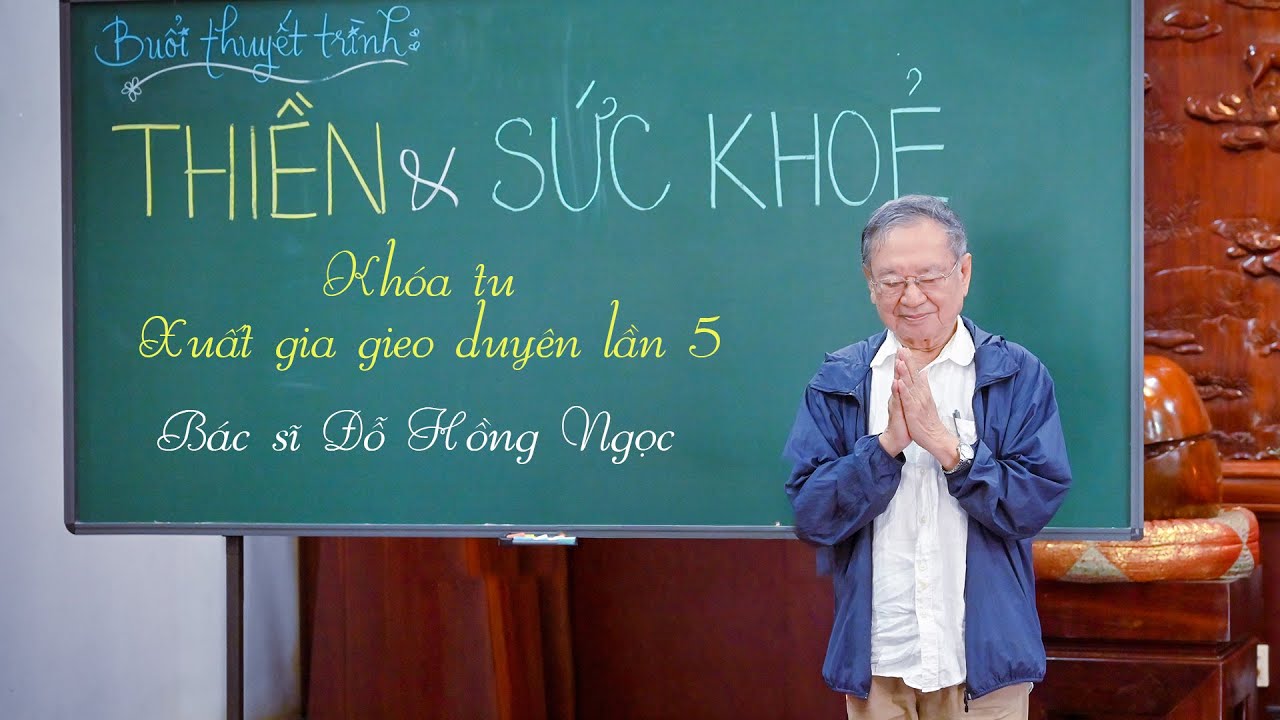 Buổi thuyết trình:
THIỀN & SỨC KHOẺ
Khóa tu
Xuất gia gieo duyên lần 5
Bác sĩ Đỗ Hồng Ngọc